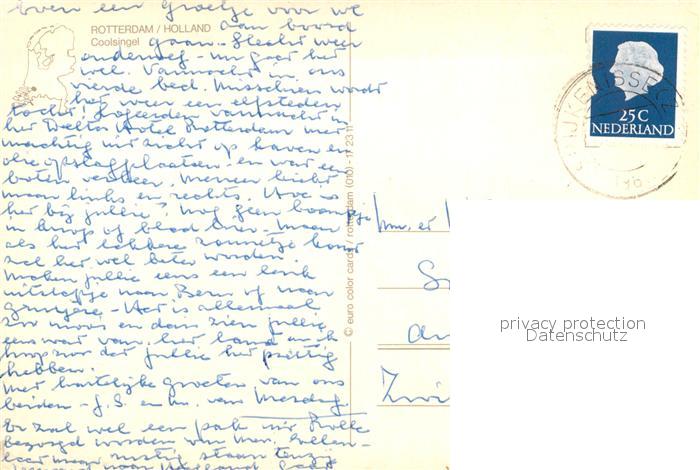 even een groetje voor we
aan boord
ROTTERDAM / HOLLAND
Coolsingel
gaan. Slecht weer
onderweg - nu gaat het
wel. Vannacht in ons
vierde bed. Misschien wordt
het weer een elfsteden
tocht! Logeerden vannacht in
het Delta Hotel Rotterdam met
machtig uitzicht op haven en
olie opslagplaatsen en war een
boten verkeer. Meneer kiekt
maar links en rechts. Hoe is
het bij jullie? Nog geen boompje
in knop of blad hier. Maar
als het lekkere zonnetje komt
zal het wel beter worden.
Maken jullie eens een leuk
uitstapje naar Bern of naar
Gruyère. - Het is allemaal
zo mooi en dan zien jullie
eens wat van het land en ik
hoop zo dat jullie het prettig
hebben.
Met hartelijke groeten van ons
beiden - J.S. en m. van Mesdag.
Er zal wel een pak uit Zwolle
bezorgd worden van
maar rustig staan tenzij
naar Holland
© euro color cards / rotterdam (010) - 17 23 11
25 C
NEDERLAND
Fam. et
Zwi
privacy protection
Datenschutz